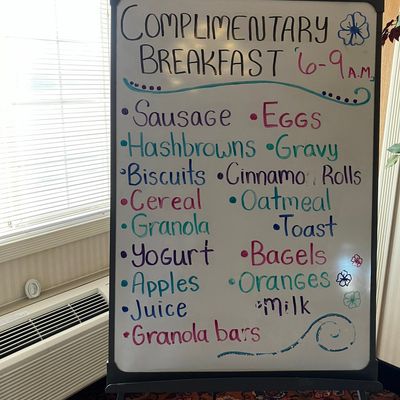 COMPLIMENTARY
BREAKFAST 6-9 A.M.
• Sausage • EGGS
• Hashbrowns • Gravy
• Biscuits • Cinnamo Rolls
• Cereal • Oatmeal
• Granola • Toast
• Yogurt • Bagels
• Apples • Oranges
• Juice • Milk
• Granola bars